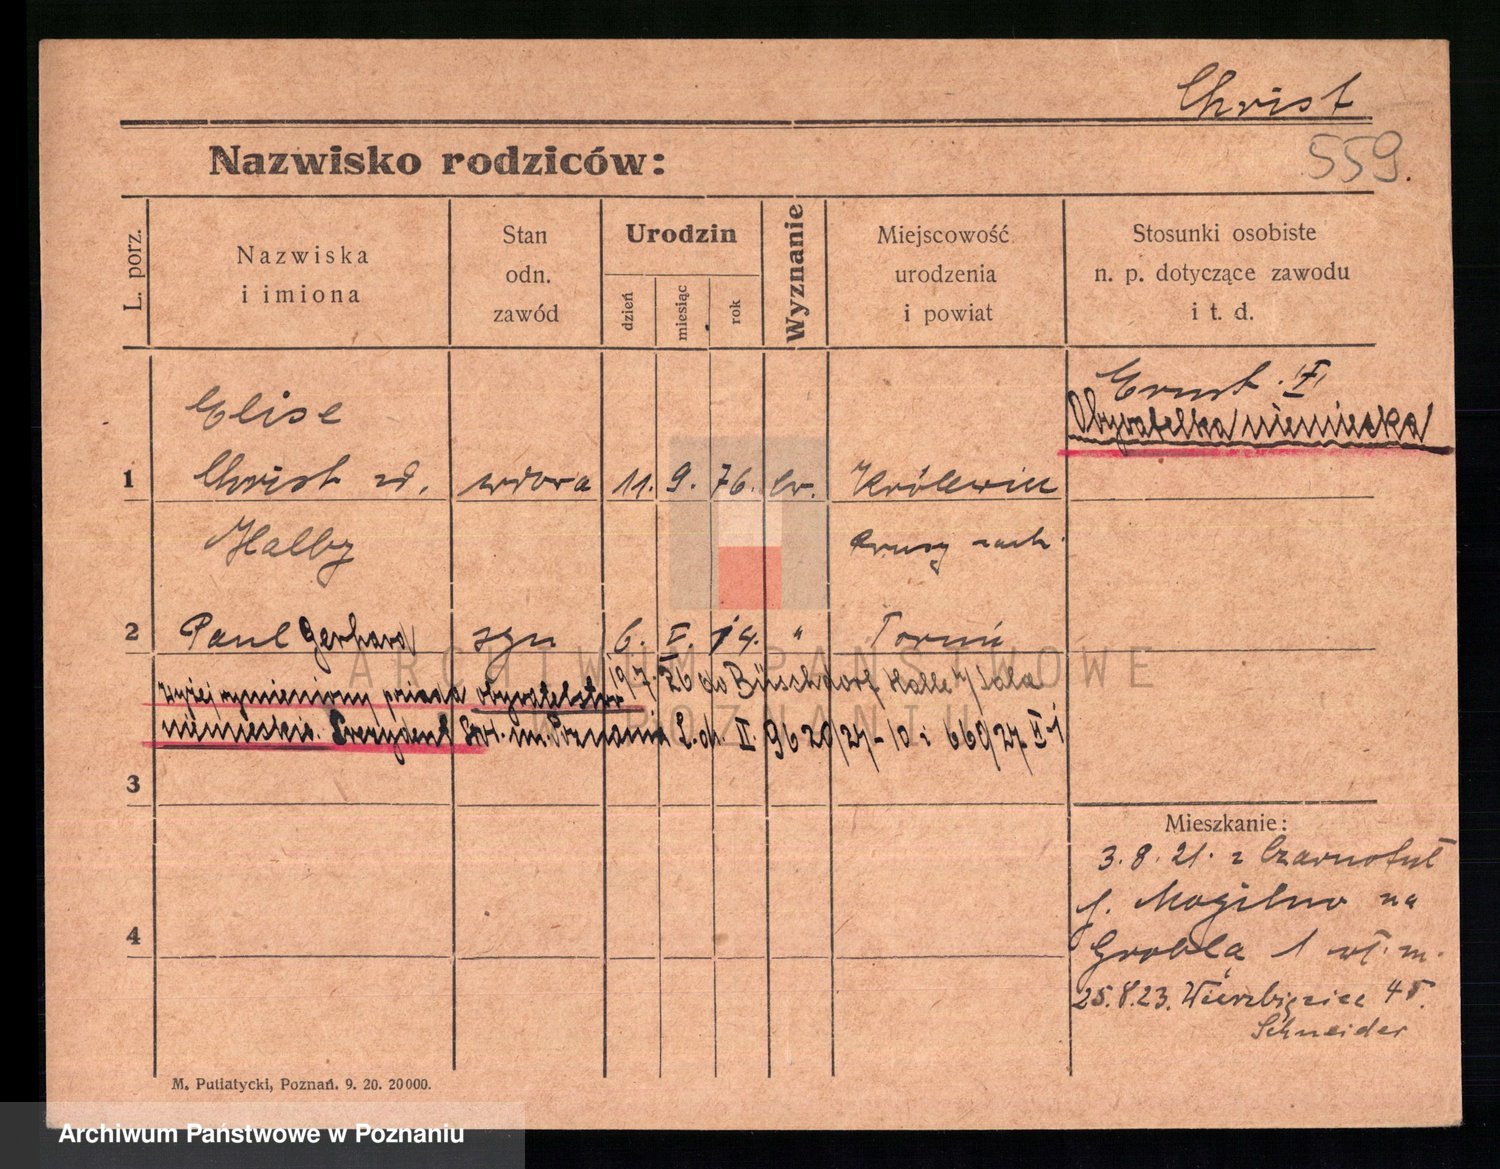 Christ
Nazwisko rodziców:
559.
L. porz.
Nazwiska
i imiona
Stan
odn.
zawód
Urodzin
dzień
miesiąc
rok
Wyznanie
Miejscowość
urodzenia
i powiat
Stosunki osobiste
n. p. dotyczące zawodu
i t. d.
Elise
Ernst
Obywatelka niemiecka
1 Christ wdowa 11. 9. 76. ew. Królewiec
Halby Prusy
2 Paul Gerhard syn 6. 14. " Toruń
wyżej wymieniony posiada obywatelstwo 19 7. 26 do Büschdorf Halle
niemieckie. Prezydent m. Poznania L.d. II. 9620/27-10 i 660/27
3
Mieszkanie:
3.8.21. z Czarnotul
p. Mogilno na
4
Grobla 1
25.8.23. Wierzbięcice 45.
Schneider
M. Putiatycki, Poznań. 9. 20. 20000.
ARCHIWUM PAŃSTWOWE
W POZNANIU
Archiwum Państwowe w Poznaniu